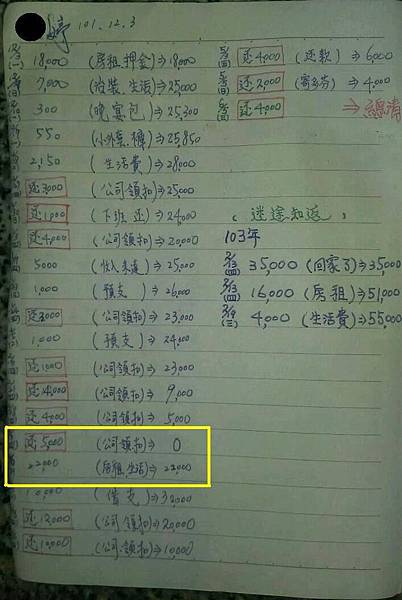 婷 101.12.3
18,000 (房租.押金)⇒18,000
7,000 (治裝.生活)⇒25,000
300 (晚宴包)⇒25,300
550 ⇒25,850
2,150 (生活費)⇒28,000
还3000 (公司領扣)⇒25,000
还1,000 (下班还)⇒24,000
还4,000 (公司領扣)⇒20,000
5000 ⇒25,000
1,000 (預支)⇒26,000
还3000 (公司領扣)⇒23,000
1,000 (預支)⇒24,000
还1000 (公司領扣)⇒23,000
(公司領扣)⇒9,000
还4000 (公司領扣)⇒5,000
还5,000 (公司領扣)⇒0
22000 (房租.生活)⇒22,000
10,000 (借支)⇒32,000
还12,000 (公司領扣)⇒20,000
还10,000 (公司領扣)⇒10,000
还4000 (还款)⇒6,000
还2,000 ⇒4,000
还4,000 ⇒總清
(迷途知返)
103年
35,000 (回家了)⇒35,000
16,000 (房租)⇒51,000
4,000 (生活費)⇒55,000